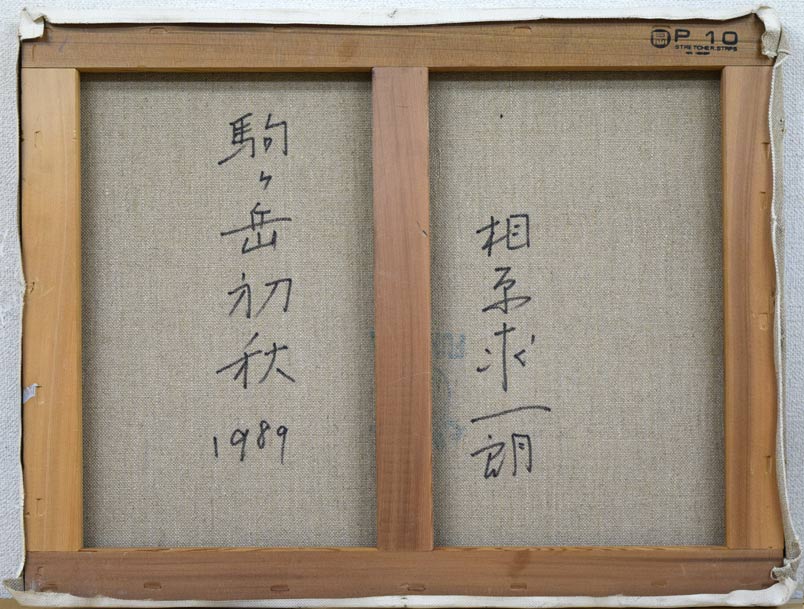 P 10
STRETCHER STRPS
相原求一朗
駒ヶ岳初秋
1989